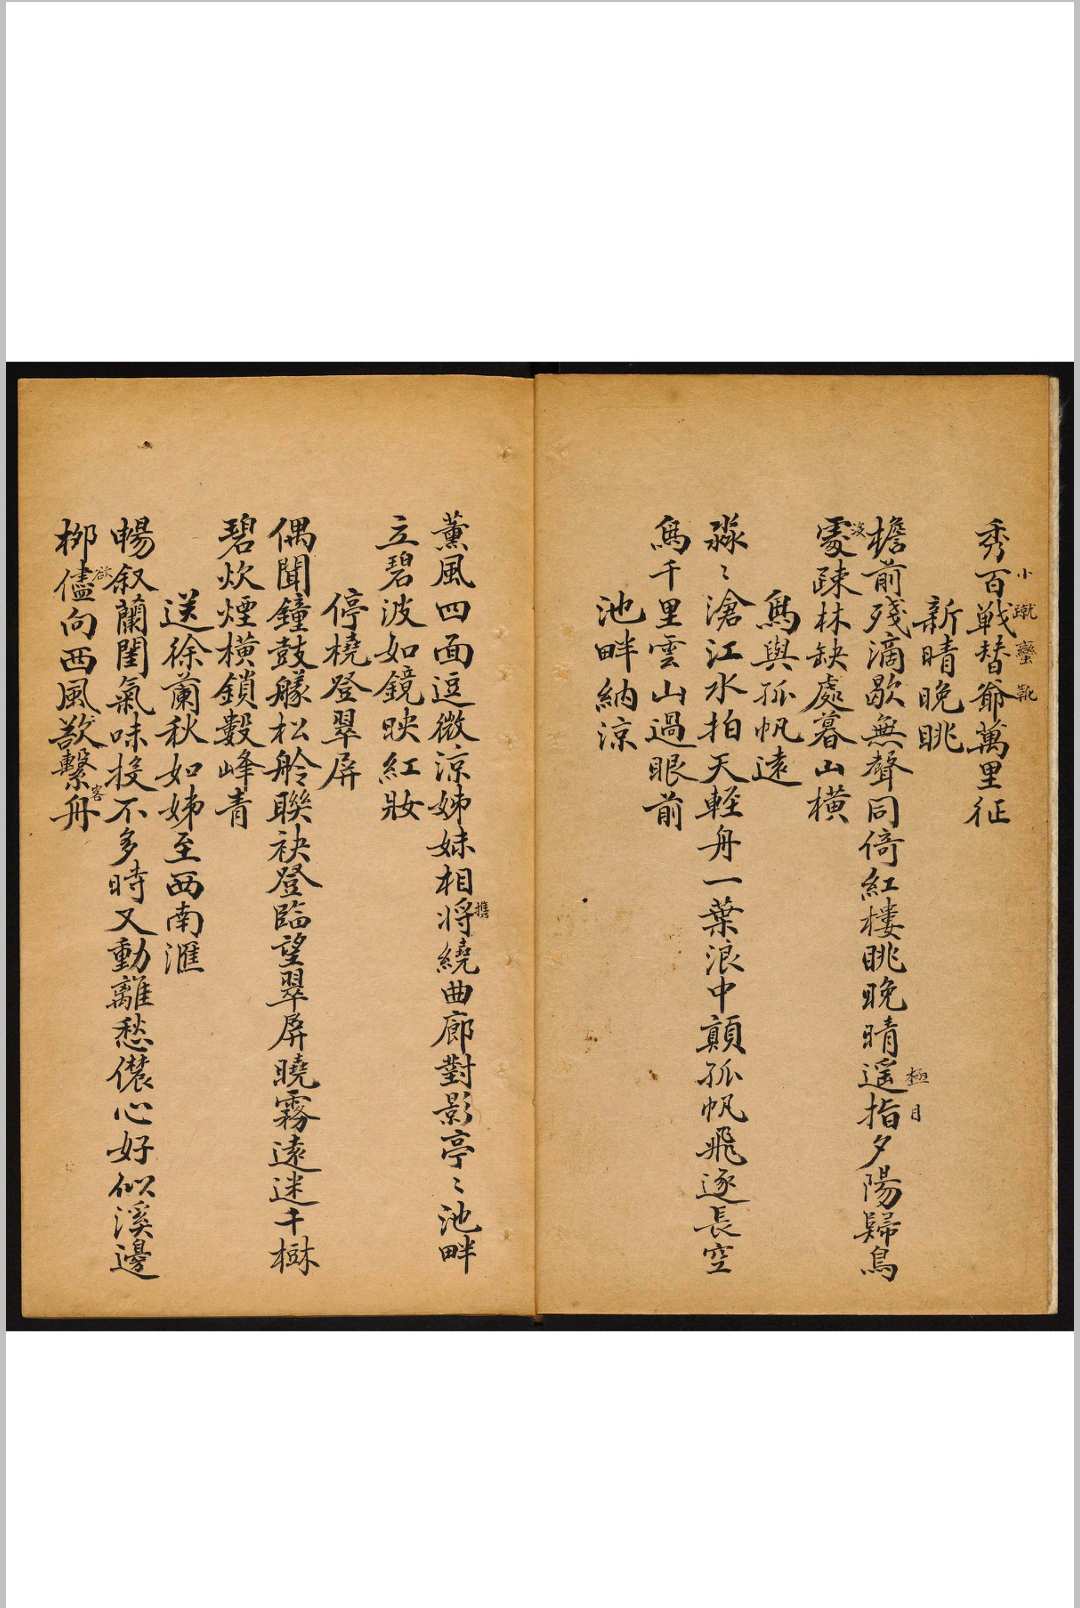 小蹴蠻靴
秀百戰替爺萬里征
新晴晚眺
極目
檐前殘滴歇無聲同倚紅樓眺晚晴遥指夕陽歸鳥
没
處疎林缺處暮山橫
舄與孤帆遠
淼〻滄江水拍天輕舟一葉浪中顛孤帆飛逐長空
舄千里雲山過眼前
池畔納涼
攜
薰風四面逗微涼姊妹相將繞曲廊對影亭〻池畔
立碧波如鏡映紅妝
停橈登翠屏
偶聞鐘鼓艤松舲聯袂登臨望翠屏曉霧遠迷千樹
碧炊煙橫鎖數峰青
送徐蘭秋如姊至西南滙
暢叙蘭閨氣味投不多時又動離愁儂心好似溪邊
欲
客
柳儘向西風㰱繫舟